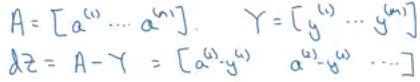 A = [a⁽¹⁾ ... a⁽ᵐ⁾]. Y = [y⁽¹⁾ ... y⁽ᵐ⁾]
dz = A - Y = [a⁽¹⁾-y⁽¹⁾ a⁽²⁾-y⁽²⁾ ...]